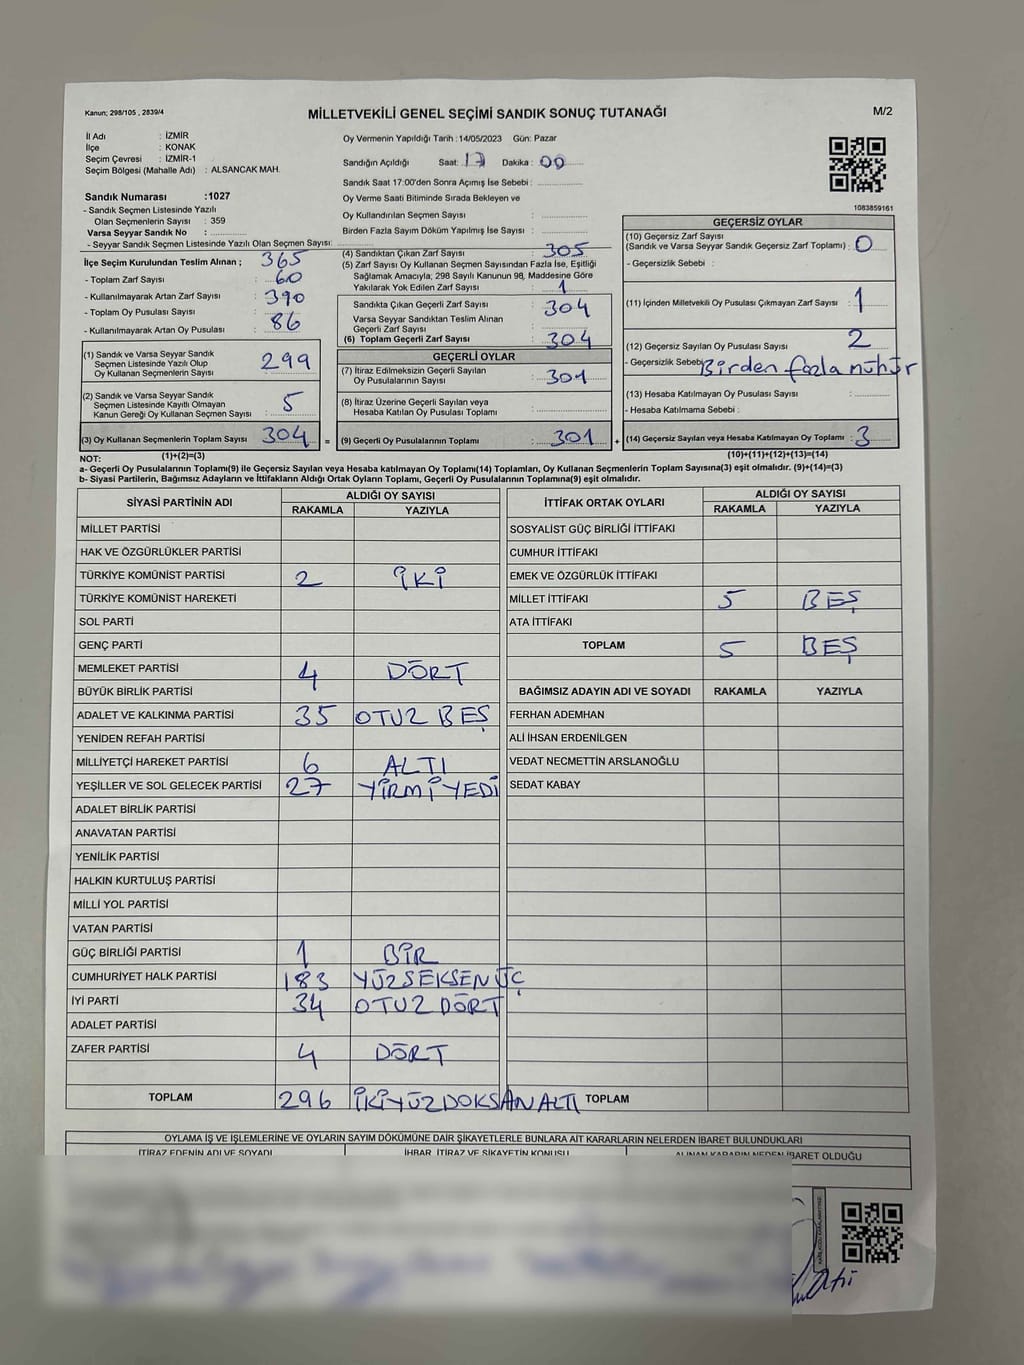 Kanun; 298/105 , 2839/4
MİLLETVEKİLİ GENEL SEÇİMİ SANDIK SONUÇ TUTANAĞI
M/2
İl Adı : İZMİR
İlçe : KONAK
Seçim Çevresi : İZMİR-1
Seçim Bölgesi (Mahalle Adı) : ALSANCAK MAH.
Sandık Numarası :1027
- Sandık Seçmen Listesinde Yazılı
Olan Seçmenlerin Sayısı : 359
Varsa Seyyar Sandık No :
- Seyyar Sandık Seçmen Listesinde Yazılı Olan Seçmen Sayısı:
Oy Vermenin Yapıldığı Tarih : 14/05/2023 Gün: Pazar
Sandığın Açıldığı Saat: 17 Dakika : 00
Sandık Saat 17:00'den Sonra Açımış İse Sebebi :
Oy Verme Saati Bitiminde Sırada Bekleyen ve
Oy Kullandırılan Seçmen Sayısı :
Birden Fazla Sayım Döküm Yapılmış İse Sayısı :
1083859161
İlçe Seçim Kurulundan Teslim Alınan ;
- Toplam Zarf Sayısı : 365
- Kullanılmayarak Artan Zarf Sayısı : 60
- Toplam Oy Pusulası Sayısı : 390
- Kullanılmayarak Artan Oy Pusulası : 86
(1) Sandık ve Varsa Seyyar Sandık
Seçmen Listesinde Yazılı Olup
Oy Kullanan Seçmenlerin Sayısı : 299
(2) Sandık ve Varsa Seyyar Sandık
Seçmen Listesinde Yazılı Olmayan
Kanun Gereği Oy Kullanan Seçmen Sayısı : 5
(3) Oy Kullanan Seçmenlerin Toplam Sayısı : 304
(1)+(2)=(3)
(4) Sandıktan Çıkan Zarf Sayısı : 305
(5) Zarf Sayısı Oy Kullanan Seçmen Sayısından Fazla İse, Eşitliği
Sağlamak Amacıyla; 298 Sayılı Kanunun 98, Maddesine Göre
Yakılarak Yok Edilen Zarf Sayısı : 1
Sandıkta Çıkan Geçerli Zarf Sayısı : 304
Varsa Seyyar Sandıktan Teslim Alınan
Geçerli Zarf Sayısı :
(6) Toplam Geçerli Zarf Sayısı : 304
GEÇERLİ OYLAR
(7) İtiraz Edilmeksizin Geçerli Sayılan
Oy Pusulasının Sayısı : 301
(8) İtiraz Üzerine Geçerli Sayılan veya
Hesaba Katılan Oy Pusulası Toplamı :
= (9) Geçerli Oy Pusulalarının Toplamı : 301 +
GEÇERSİZ OYLAR
(10) Geçersiz Zarf Sayısı
(Sandık ve Varsa Seyyar Sandık Geçersiz Zarf Toplamı) : 0
- Geçersizlik Sebebi :
(11) İçinden Milletvekili Oy Pusulası Çıkmayan Zarf Sayısı : 1
(12) Geçersiz Sayılan Oy Pusulası Sayısı 2
- Geçersizlik Sebebi Birden fazla mühür
(13) Hesaba Katılmayan Oy Pusulası Sayısı :
- Hesaba Katılmama Sebebi :
(14) Geçersiz Sayılan veya Hesaba Katılmayan Oy Pusulası Toplamı : 3
(10)+(11)+(12)+(13)=(14)
NOT:
a- Geçerli Oy Pusulalarının Toplamı(9) ile Geçersiz Sayılan veya Hesaba katılmayan Oy Toplamı(14) Toplamları, Oy Kullanan Seçmenlerin Toplam Sayısına(3) eşit olmalıdır. (9)+(14)=(3)
b- Siyasi Partilerin, Bağımsız Adayların ve İttifakların Aldığı Ortak Oyların Toplamı, Geçerli Oy Pusulalarının Toplamına(9) eşit olmalıdır.
SİYASİ PARTİNİN ADI ALDIĞI OY SAYISI
RAKAMLA YAZIYLA
MİLLET PARTİSİ
HAK VE ÖZGÜRLÜKLER PARTİSİ
TÜRKİYE KOMÜNİST PARTİSİ 2 İKİ
TÜRKİYE KOMÜNİST HAREKETİ
SOL PARTİ
GENÇ PARTİ
MEMLEKET PARTİSİ 4 DÖRT
BÜYÜK BİRLİK PARTİSİ
ADALET VE KALKINMA PARTİSİ 35 OTUZ BEŞ
YENİDEN REFAH PARTİSİ
MİLLİYETÇİ HAREKET PARTİSİ 6 ALTI
YEŞİLLER VE SOL GELECEK PARTİSİ 27 YİRMİ YEDİ
ADALET BİRLİK PARTİSİ
ANAVATAN PARTİSİ
YENİLİK PARTİSİ
HALKIN KURTULUŞ PARTİSİ
MİLLİ YOL PARTİSİ
VATAN PARTİSİ
GÜÇ BİRLİĞİ PARTİSİ 1 BİR
CUMHURİYET HALK PARTİSİ 183 YÜZSEKSEN ÜÇ
İYİ PARTİ 34 OTUZ DÖRT
ADALET PARTİSİ
ZAFER PARTİSİ 4 DÖRT
TOPLAM 296 İKİYÜZDOKSANALTI
İTTİFAK ORTAK OYLARI ALDIĞI OY SAYISI
RAKAMLA YAZIYLA
SOSYALİST GÜÇ BİRLİĞİ İTTİFAKI
CUMHUR İTTİFAKI
EMEK VE ÖZGÜRLÜK İTTİFAKI
MİLLET İTTİFAKI 5 BEŞ
ATA İTTİFAKI
TOPLAM 5 BEŞ
BAĞIMSIZ ADAYIN ADI VE SOYADI RAKAMLA YAZIYLA
FERHAN ADEMHAN
ALİ İHSAN ERDENİLGEN
VEDAT NECMETTİN ARSLANOĞLU
SEDAT KABAY
TOPLAM
OYLAMA İŞ VE İŞLEMLERİNE VE OYLARIN SAYIM DÖKÜMÜNE DAİR ŞİKAYETLERLE BUNLARA AİT KARARLARIN NELERDEN İBARET BULUNDUKLARI
İTİRAZ EDENİN ADI VE SOYADI İHBAR, İTİRAZ VE ŞİKAYETİN KONUSU ALINAN KARARIN NEDEN İBARET OLDUĞU